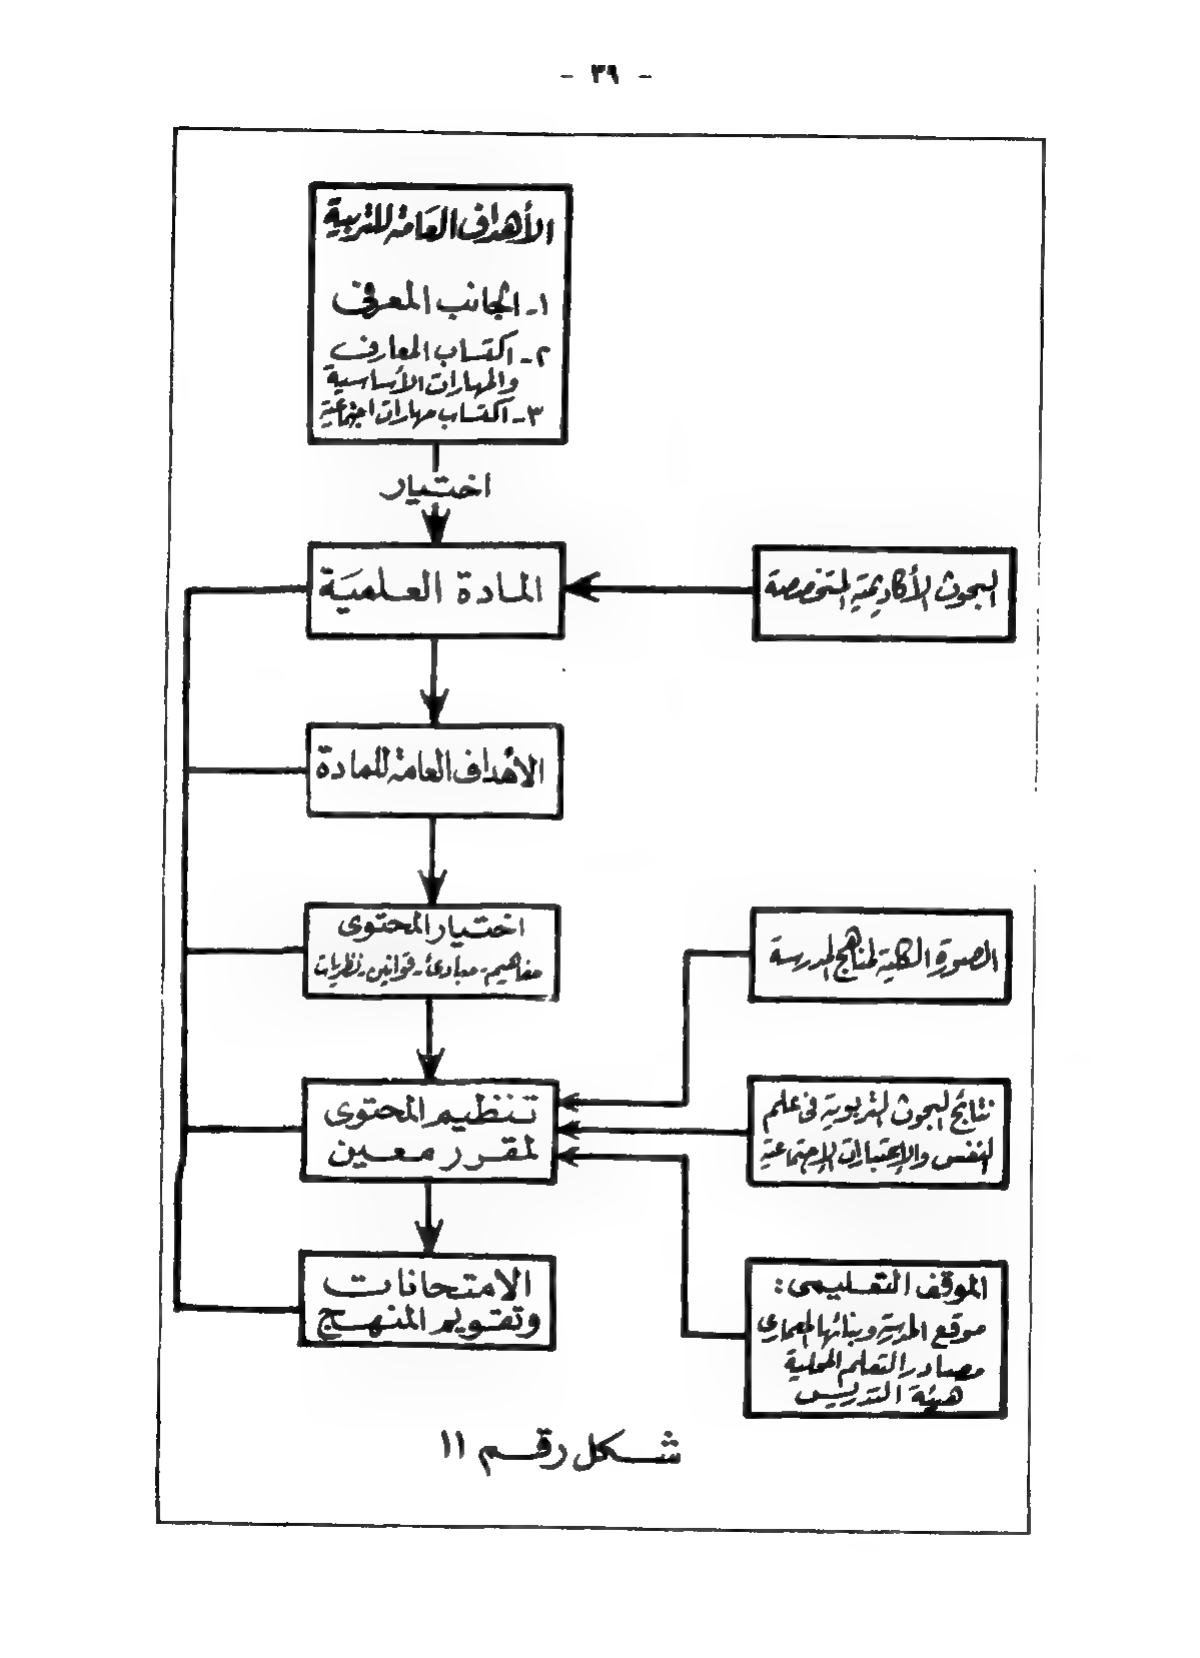 - ٣٩ -
الأهداف العامة للتربية
١- الجانب المعرفى
٢- اكتساب المعارف
والمهارات الأساسية
٣- اكتساب مهارات اجتماعية
اختيار
المادة العلمية
البحوث الأكاديمية المتخصصة
الأهداف العامة للمادة
اختيار المحتوى
مفاهيم - مبادئ - قوانين - نظريات
الصورة الكلية لمناهج المدرسة
تنظيم المحتوى
لمقرر معين
نتائج البحوث التربوية فى علم
النفس والإعتبارات الإجتماعية
الامتحانات
وتقويم المنهج
الموقف التعليمى :
موقع المدرسة وبنائها المعمارى
مصادر التعلم المحلية
هيئة التدريس
شكل رقم ١١